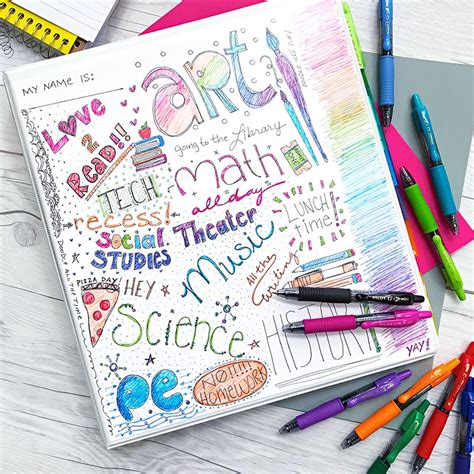 MY NAME IS:
art
LOVE
2
READ!!
going to the Library
math
all day
TECH
recess!
Social
STUDIES
Theater
LUNCH
time!
Music
PIZZA DAY!
HEY
All the
writing
Science
HISTORY
pe
NO!!!!
HOMEWORK
YAY!
PILOT G2